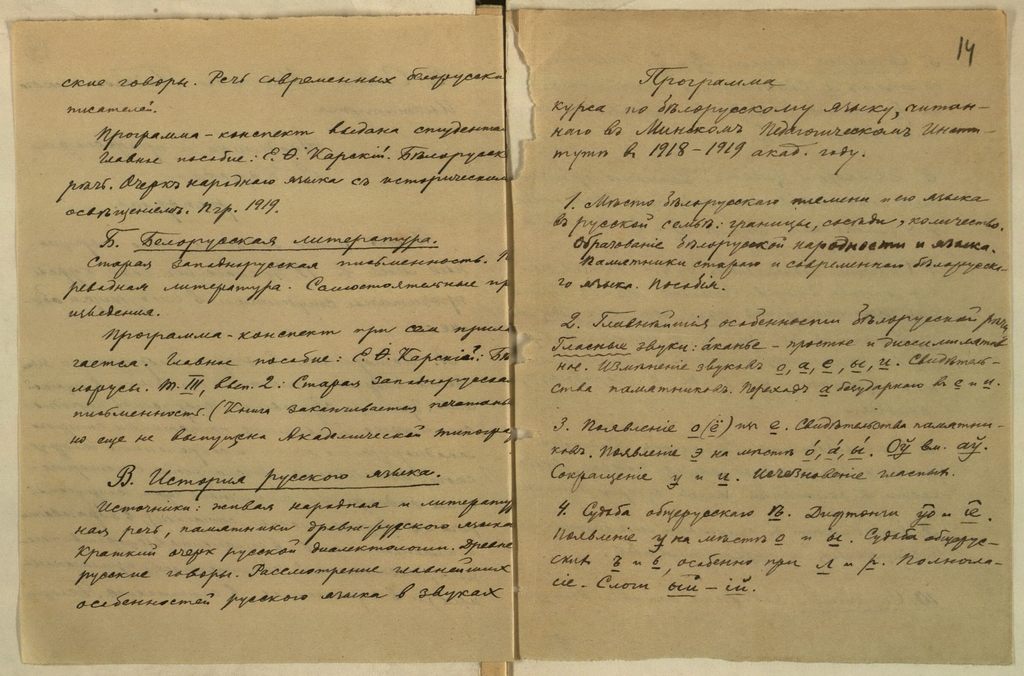 ские говоры. Речь современных белорусски
писателей.
Программа-конспект выдана студента
Главное пособие: Е. Ѳ. Карскій. Бѣлорусск
рѣчь. Очеркъ народнаго языка съ историческимъ
освѣщеніемъ. Пгр. 1919.
Б. Белорусская литература.
Старая западнорусская письменность. П
реводная литература. Самостоятельные пр
изведения.
Программа-конспект при сем прила
гается. Главное пособие: Е. Ѳ. Карскій: Бѣ
лорусы. Т. III, вып. 2: Старая западнорусская
письменность. (Книга заканчивается печатань
но еще не выпущена Академической типогра
В. История русского языка.
Источники: живая народная и литерату
ная речь, памятники древне-русского языка
Краткий очерк русской диалектологии. Древне
русские говоры. Рассмотрение главнейших
особенностей русского языка в звуках
14
Программа
курса по бѣлорусскому языку, читан-
наго въ Минскомъ Педагогическомъ Инсти-
тутѣ в 1918-1919 акад. году.
1. Мѣсто бѣлорусскаго племени и его языка
въ русской семьѣ: границы, сосѣди, количество.
Образованіе бѣлорусской народности и языка.
Памятники стараго и современнаго бѣлорусска-
го языка. Пособія.
2. Главнѣйшія особенности бѣлорусской рѣчи
Гласные звуки: а́канье - простое и диссимилятив
ное. Измѣненіе звуковъ о, а, е, ы, и. Свидѣтель-
ства памятниковъ. Переходъ а безударнаго въ е и и.
3. Появленіе о (ё) изъ е. Свидѣтельства памятни-
ковъ. Появленіе э на мѣстѣ о́, а́, ы́. Оў вм. аў.
Сокращеніе у и и. Исчезновеніе гласныхъ.
4. Судьба общерусскаго ѣ. Дифтонги уо и іе.
Появленіе у на мѣстѣ о и ы. Судьба общерус-
скихъ ъ и ь, особенно при л и р. Полногла-
сіе. Слоги ый - ій.